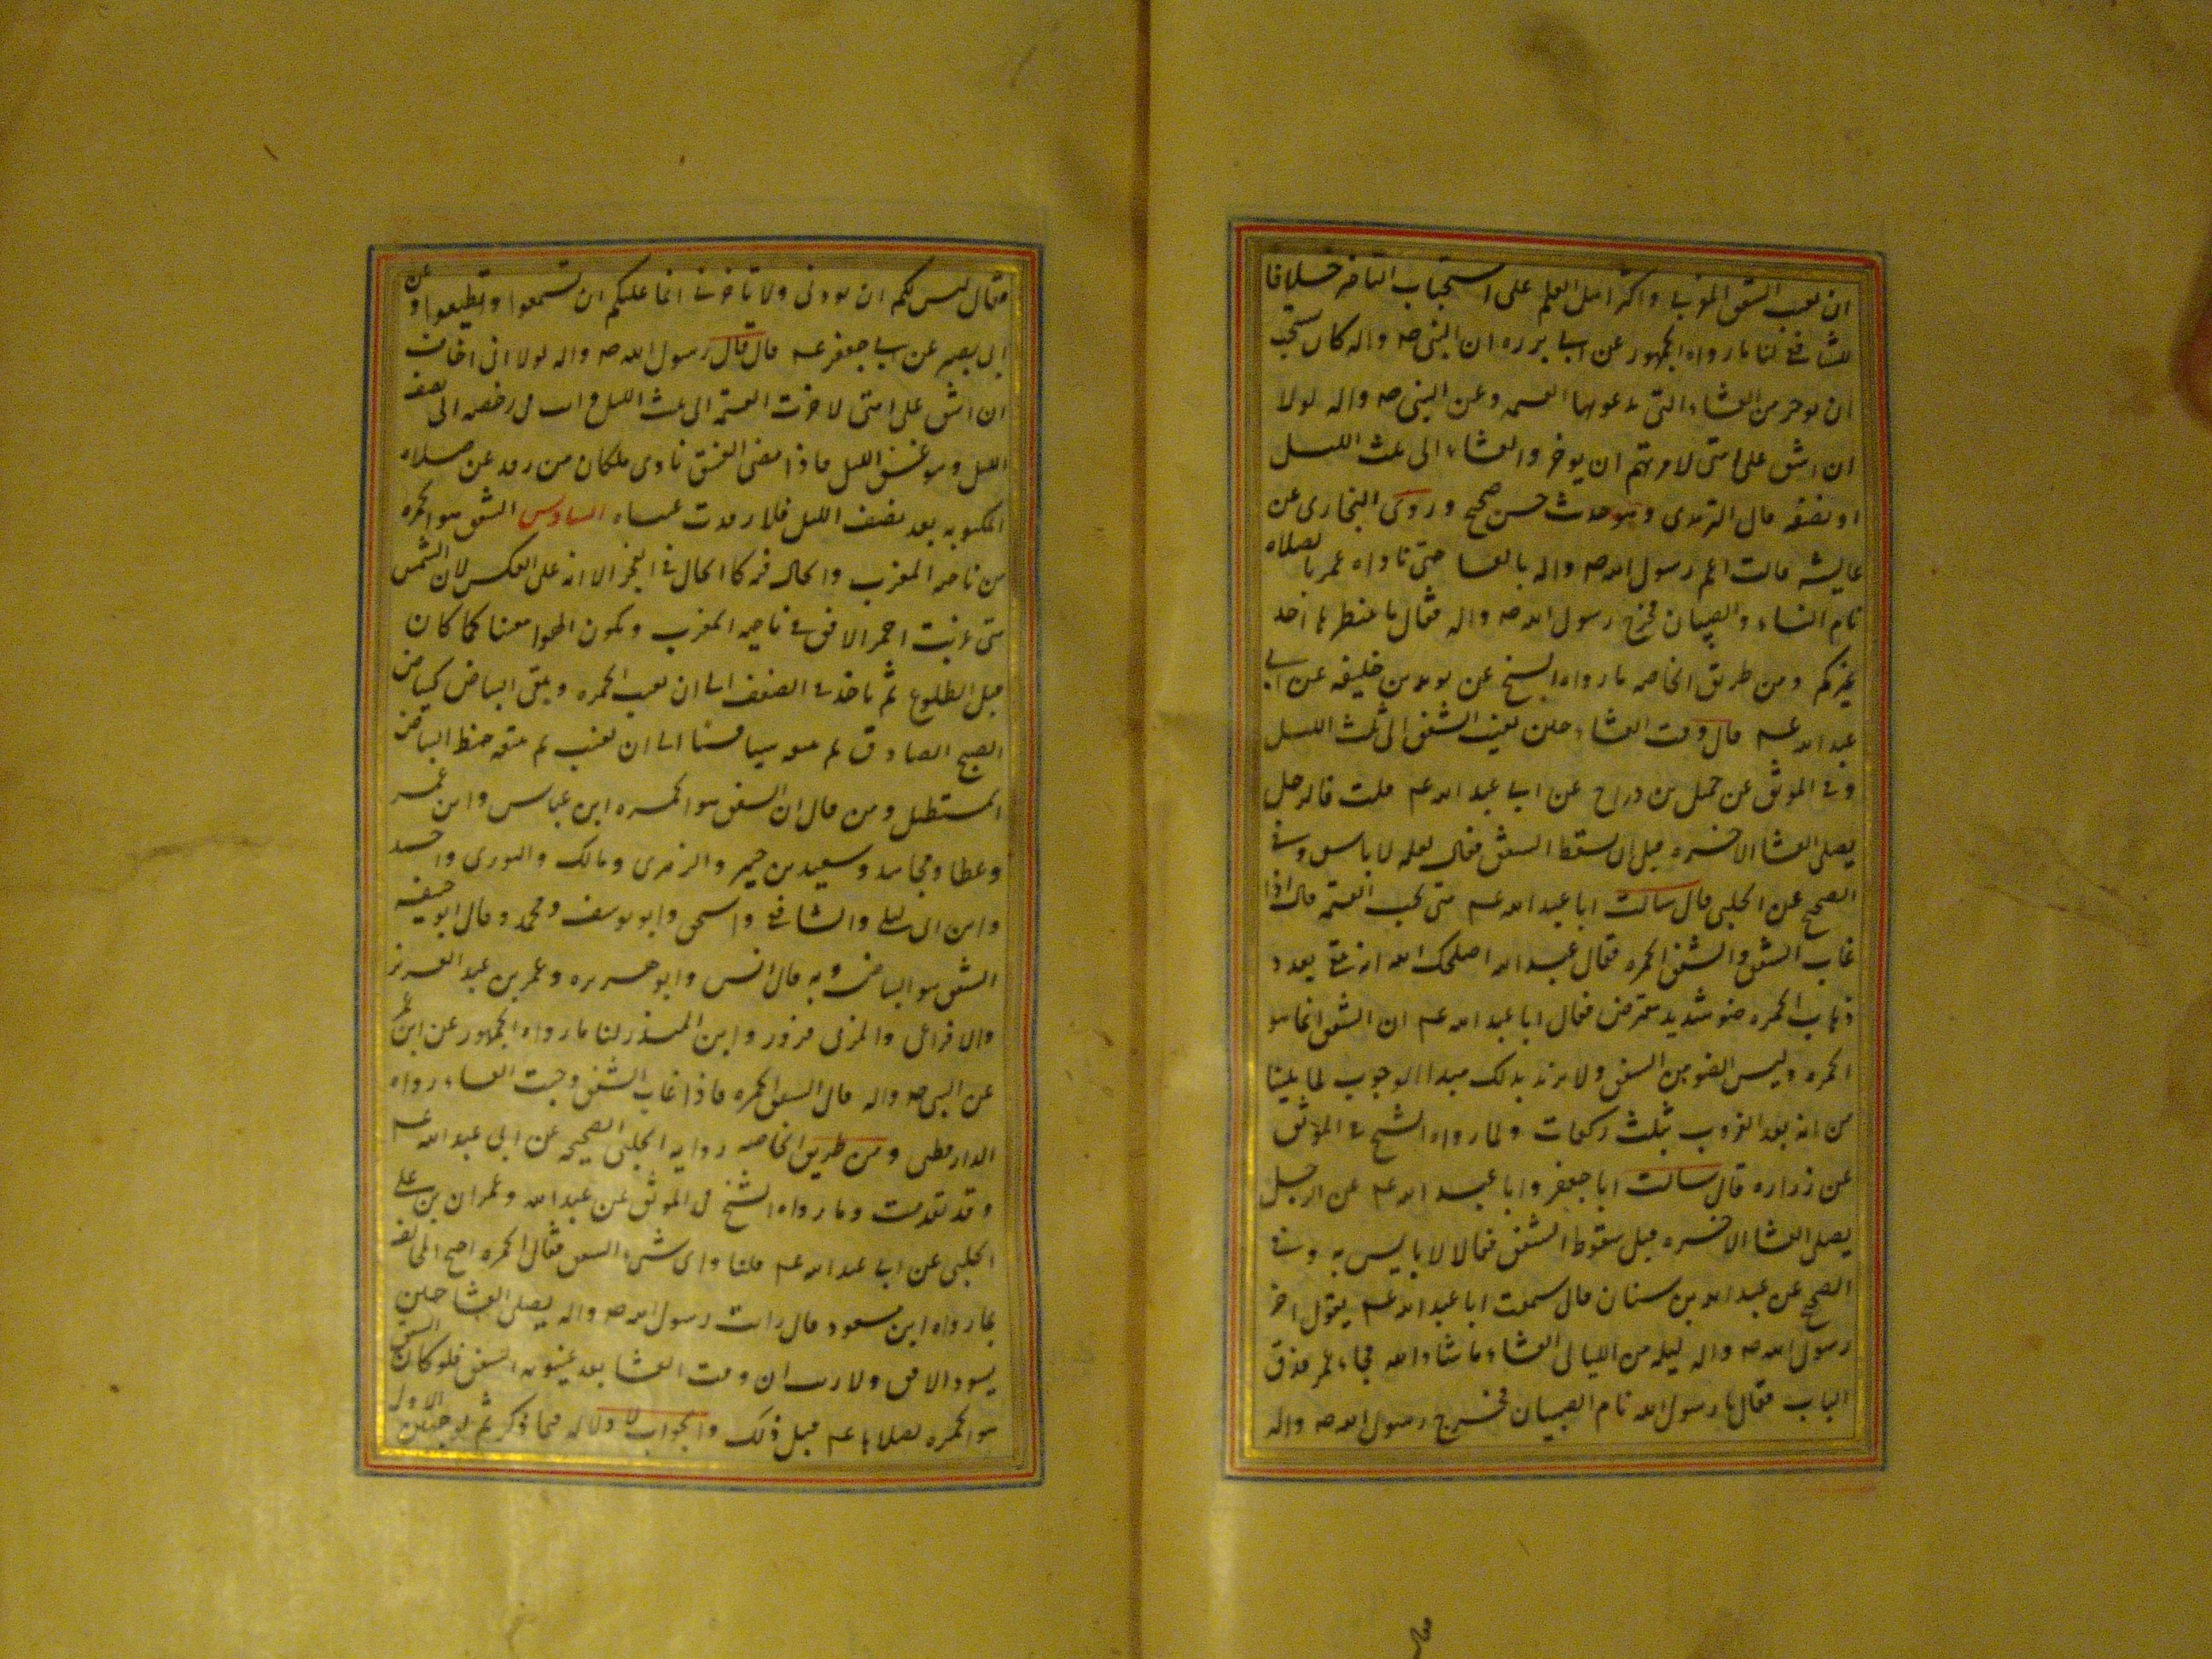 ان يغيب الشفق المغربي واكثر اهل العلم على استحباب التاخر خلافا
للشافعي لنا ما رواه الجمهور عن ابي برزه ان النبي صه واله كان يستحب
ان يوخر من العشاء التي يدعونها العتمه وعن النبي صه واله لولا
ان اشق على امتي لامرتهم ان يوخروا العشاء الى ثلث الليل
او نصفه قال الترمدي وهو حديث حسن صحيح وروى البخاري عن
عايشه قالت اعتم رسول الله صه واله بالعشا حتى ناداه عمر بالصلاه
نام النساء والصبيان فخرج رسول الله صه واله فقال ما ينتظرها احد
غيركم ومن طريق الخاصه ما رواه الشيخ عن يزيد بن خليفه عن ابي
عبد الله عم قال وقت العشاء حين يغيب الشفق الى ثلث الليل
وفي الموثق عن جميل بن دراج عن ابي عبد الله عم قلت فالرجل
يصلي العشا الاخره قبل ان يسقط الشفق فقال لعله لا باس وفي
الصحيح عن الحلبي قال سالت ابا عبد الله عم متى تجب العتمه قال اذا
غاب الشفق والشفق الحمره فقال عبيد الله اصلحك الله انه يبقى بعد
ذهاب الحمره ضو شديد معترض فقال ابا عبد الله عم ان الشفق انما هو
الحمره وليس الضو من الشفق ولا نريد بذلك مبدا الوجوب لما بينا
من انه بعد الغروب بثلث ركعات ولما رواه الشيخ في الموثق
عن زراره قال سالت ابا جعفر وابا عبد الله عم عن الرجل
يصلي العشا الاخره قبل سقوط الشفق فقالا لا باس به وفي
الصحيح عن عبد الله بن سنان قال سمعت ابا عبد الله عم يقول اخر
رسول الله صه واله ليله من الليالي العشاء ما شاء الله فجاء عمر فدق
الباب فقال يا رسول الله نام الصبيان فخرج رسول الله صه واله
فقال ليس لكم ان توذوني ولا تاخروني انما عليكم ان تسمعوا وتطيعوا وعن
ابي بصير عن ابي جعفر عم قال قال رسول الله صه واله لولا اني اخاف
ان اشق على امتي لاخرت العتمه الى ثلث الليل وانت في رخصه الى نصف
الليل وهو غسق الليل فاذا مضى الغسق نادى ملكان من رقد عن صلاه
المكتوبه بعد نصف الليل فلا رقدت عيناه السادس الشفق هو الحمره
من ناحيه المغرب والحال فيه كالحال في الفجر الا انه على العكس لان الشمس
متى غربت احمر الافق في ناحيه المغرب ويكون الهوا معنا كما كان
قبل الطلوع ثم ياخذ في الضعف الى ان تغيب الحمره ويبقى البياض كبياض
الصبح الصادق ثم الى ان يغيب ثم يبقى البياض
المستطيل ومن قال ان الشفق هو الحمره ابن عباس وابن عمر
وعطا ومجاهد وسعيد بن جبير والزهري ومالك والثوري واحمد
وابن ابي ليلى والشافعي واسحق وابو يوسف ومحمد وقال ابو حنيفه
الشفق هو البياض وبه قال انس وابو هريره وعمر بن عبد العزيز
والاوزاعي والمزني وزفر وابن المنذر لنا ما رواه الجمهور عن ابن عمر
عن النبي صه واله قال الشفق الحمره فاذا غاب الشفق وجبت العشاء رواه
الدارقطني ومن طريق الخاصه روايه الحلبي الصحيحه عن ابي عبد الله عم
وقد تقدمت وما رواه الشيخ في الموثق عن عبد الله وعمران بن علي
الحلبي عن ابي عبد الله عم قلنا واي شيء الشفق فقال الحمره احتج المخالف
بما رواه ابن مسعود قال رايت رسول الله صه واله يصلي العشا حين
يسود الافق ولا ريب ان وقت العشا بعد غيبوبه الشفق فلو كان الشفق
هو الحمره لصلاها عم قبل ذلك والجواب لا دلاله فيما ذكر ثم لوجهين الاول